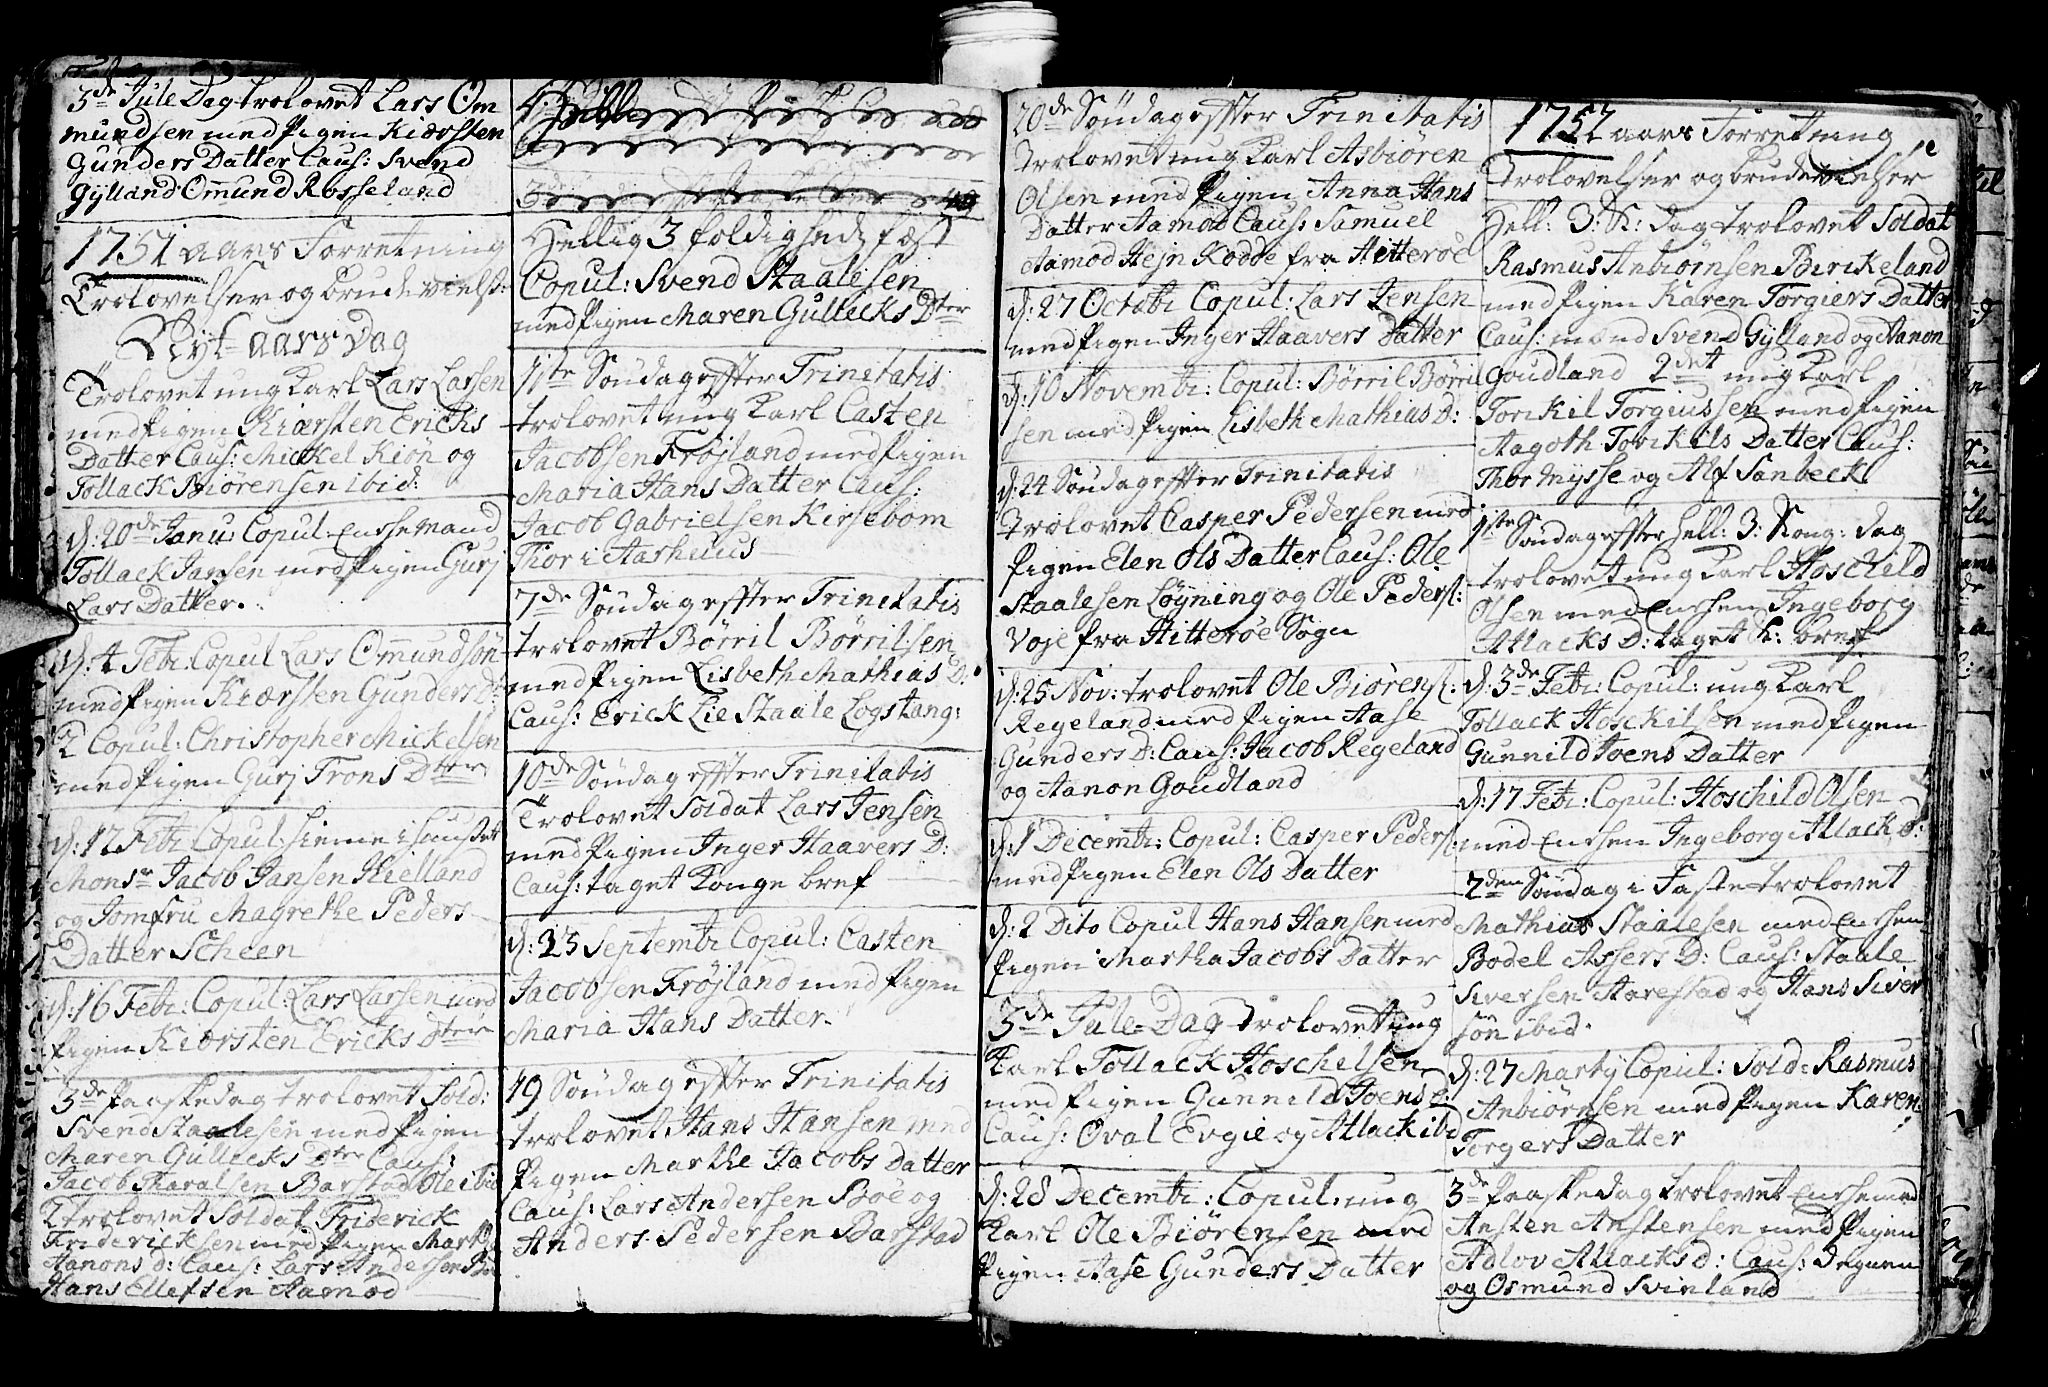 3de Jule Dag trolovet Lars Om
mundsen med Pigen Kiersten
Gunders Datter Caus: Svend
Gylland Ommund Rosseland
1751 aars Forretning
Trolovelser og brudevielst:
Nyt-aars Dag
Trolovet ung Karl Lars Larsen
med Pigen Kiersten Ericks
Datter Caus: Mickel Kiön og
Tollack Biörensen ibid:
d: 20de Janu: Copul Enckemand
Tollack Jansen med Pigen Gurj
Lars Datter.
d: 4 Febr: Copul Lars Ommundsön
med Pigen Kiersten Gunders D:
2 Copul: Christopher Mickelsen
med Pigen Gurj Trons Dtter
d: 12 Febr: Copul: hieme i huuset
Monsr Jacob Jansen Kielland
og Jomfru Magrethe Peders
Datter Scheen
d: 16 Febr: Copul: Lars Larsen med
Pigen Kiersten Ericks Dtter
3de Paaskedag trolovet Sold:
Svend Staalesen med Pigen
Maren Gullicks Dtter Caus:
Jacob Haralsen Barstad Ole ibid
2 trolovet Soldat Friderick
Fridericksen med Pigen Martha
Aanons d: Caus: Lars Andersen Böe
Hans Ellefsen Aamod
Hellig 3 foldigheds fæst
Copul: Svend Staalesen
med Pigen Maren Gullicks Dter
1ste Söndag effter Trinitatis
trolovet ung Karl Casten
Jacobsen Fröjland med Pigen
Maria Hans Datter Caus:
Jacob Gabrielsen Kirsebom
Thor i Aarhuus
7de Söndag effter Trinitatis
trolovet Börril Börrilsen
med Pigen Lisbeth Mathias D:
Caus: Erick Lie Staale Logstang:
10de Söndag effter Trinitatis
Trolovet Soldat Lars Jensen
med Pigen Inger Haavers D:
Caus: taget Konge bref
d: 23 Septembr Copul: Casten
Jacobsen Fröjland med Pigen
Maria Hans Datter.
19 Söndag effter Trinitatis
trolovet Hans Hansen med
Pigen Marthe Jacobs Datter
Caus: Lars Andersen Böe og
Anders Pedersen Barstad
20de Söndag effter Trinitatis
trolovet ung Karl Asbiören
Olsen med Pigen Anna Hans
Datter Aamod Caus: Samuel
Aamod Hejn Rodde fra Hitteröe
d: 27 Octobr Copul: Lars Jensen
med Pigen Inger Haavers Datter
d: 10 Novembr: Copul: Börril Börril
sen med Pigen Lisbeth Mathias D:
d: 24 Söndag effter Trinitatis
trolovet Casper Pedersen med
Pigen Elen Ols Datter Caus: Ole
Staalesen Löyning og Ole Peders:
Voje fra Hitteröe Sogn
d: 25 Nov: trolovet Ole Biörens:
Regeland med Pigen Aase
Gunders D: Caus: Jacob Regeland
og Aanon Goudland
d: 1 Decembr: Copul: Casper Peders:
med Pigen Elen Ols Datter
d: 2 Dito Copul Hans Hansen med
Pigen Martha Jacobs Datter
3de Jule-Dag trolovet ung
Karl Tollack Hoschelsen
med Pigen Gunnild Joens d:
Caus: Oval Evgie og Atlack ibd
d: 28 Decembr: Copul: ung
Karl Ole Biörensen med
Pigen Aase Gunders Datter
1752 aars Forretning
Trolovelser og brudevielser
Hell: 3: K: dag trolovet Soldat
Rasmus Anbiörnsen Birckeland
med Pigen Karen Torgiers Datter
Caus: mænd Svend Gylland og Aanon
Goudland 2det ung Karl
Torckil Torgiussen med Pigen
Aagoth Torckils Datter Caus:
Thor Mysse og Alf Sanbeck
1ste Söndag effter Hell: 3: Kong: dag
trolovet ung Karl Hoschild
Olsen med Encken Ingeborg
Atlacks D: taget K: bref
d: 3de Febr: Copul: ung Karl
Tollack Hoschilsen med Pigen
Gunnild Joens Datter
d: 17 Febr: Copul: Hoschild Olsen
med Encken Ingeborg Atlack d:
2den Söndag i Faste trolovet
Mathias Staalesen med Encken
Bodel Assers D: Caus: Staale
Siversen Aarestad og Hans Siver
sön ibid.
d: 27 Martij Copul: Sold: Rasmus
Anbiörnsen med Pigen Karen
Torgers Datter
3de Paaskedag trolovet Enckemed
Ansten Anstensen med Pigen
Adlov Atlacks d: Caus: Degnen
og Osmund Svinland